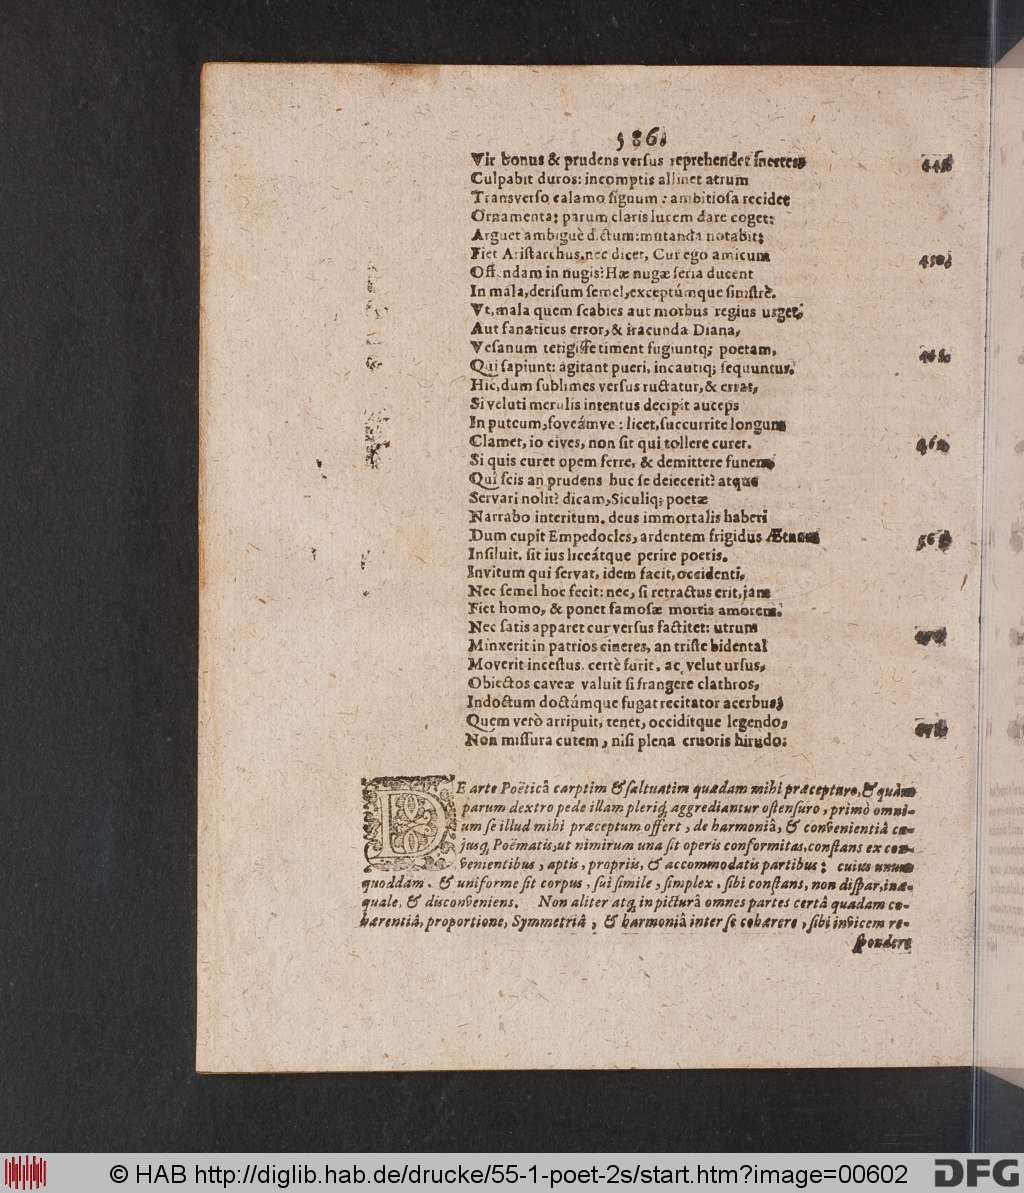 586.
Vir bonus & prudens versus reprehendet inertes 445
Culpabit duros: incomptis allinet atrum
Transverso calamo signum: ambitiosa recidet
Ornamenta; parum claris lucem dare coget:
Arguet ambiguè dictum: mutanda notabit;
Fiet Aristarchus, nec dicet, Cur ego amicum 450.
Offendam in nugis? Hæ nugæ seria ducent
In mála, derisum semel, exceptúmque sinistrè.
Vt, mala quem scabies aut morbus regius urget,
Aut fanaticus error, & iracunda Diana,
Vesanum tetigisse timent fugiuntq; poetam, 455.
Qui sapiunt: agitant pueri, incautiq; sequuntur.
Hic, dum sublimes versus ructatur, & errat,
Si veluti merulis intentus decipit auceps
In puteum, foveámve: licet, succurrite longum
Clamet, io cives, non sit qui tollere curet. 460
Si quis curet opem ferre, & demittere funem,
Quî scis an prudens huc se deiecerit? atque
Servari nolit? dicam, Siculiq; poetæ
Narrabo interitum. deus immortalis haberi
Dum cupit Empedocles, ardentem frigidus Ætnam 565
Insiluit. sit ius liceátque perire poetis.
Invitum qui servat, idem facit, occidenti,
Nec semel hoc fecit: nec, si retractus erit, jam
Fiet homo, & ponet famosæ mortis amorem.
Nec satis apparet cur versus factitet: utrum 470
Minxerit in patrios cineres, an triste bidental
Moverit incestus. certè furit, ac velut ursus,
Obiectos caveæ valuit si frangere clathros,
Indoctum doctámque fugat recitator acerbus;
Quem verò arripuit, tenet, occiditque legendo, 475
Non missura cutem, nisi plena cruoris hirudo.
DE arte Poëticâ carptim & saltuatim quædam mihi præcepturo, & quàm
parum dextro pede illam pleriq; aggrediantur ostensuro, primò omni-
um se illud mihi præceptum offert, de harmoniâ, & convenientiâ cu-
jusq; Poëmatis, ut nimirum una sit operis conformitas, constans ex con-
venientibus, aptis, propriis, & accommodatis partibus; cuius unum
quoddam, & uniforme sit corpus, sui simile, simplex, sibi constans, non dispar, inæ-
quale, & disconveniens. Non aliter atq; in picturâ omnes partes certâ quadam co-
hærentiâ, proportione, Symmetriâ, & harmoniâ inter se cohærere, sibi invicem re-
spondere
© HAB http://diglib.hab.de/drucke/55-1-poet-2s/start.htm?image=00602 DFG